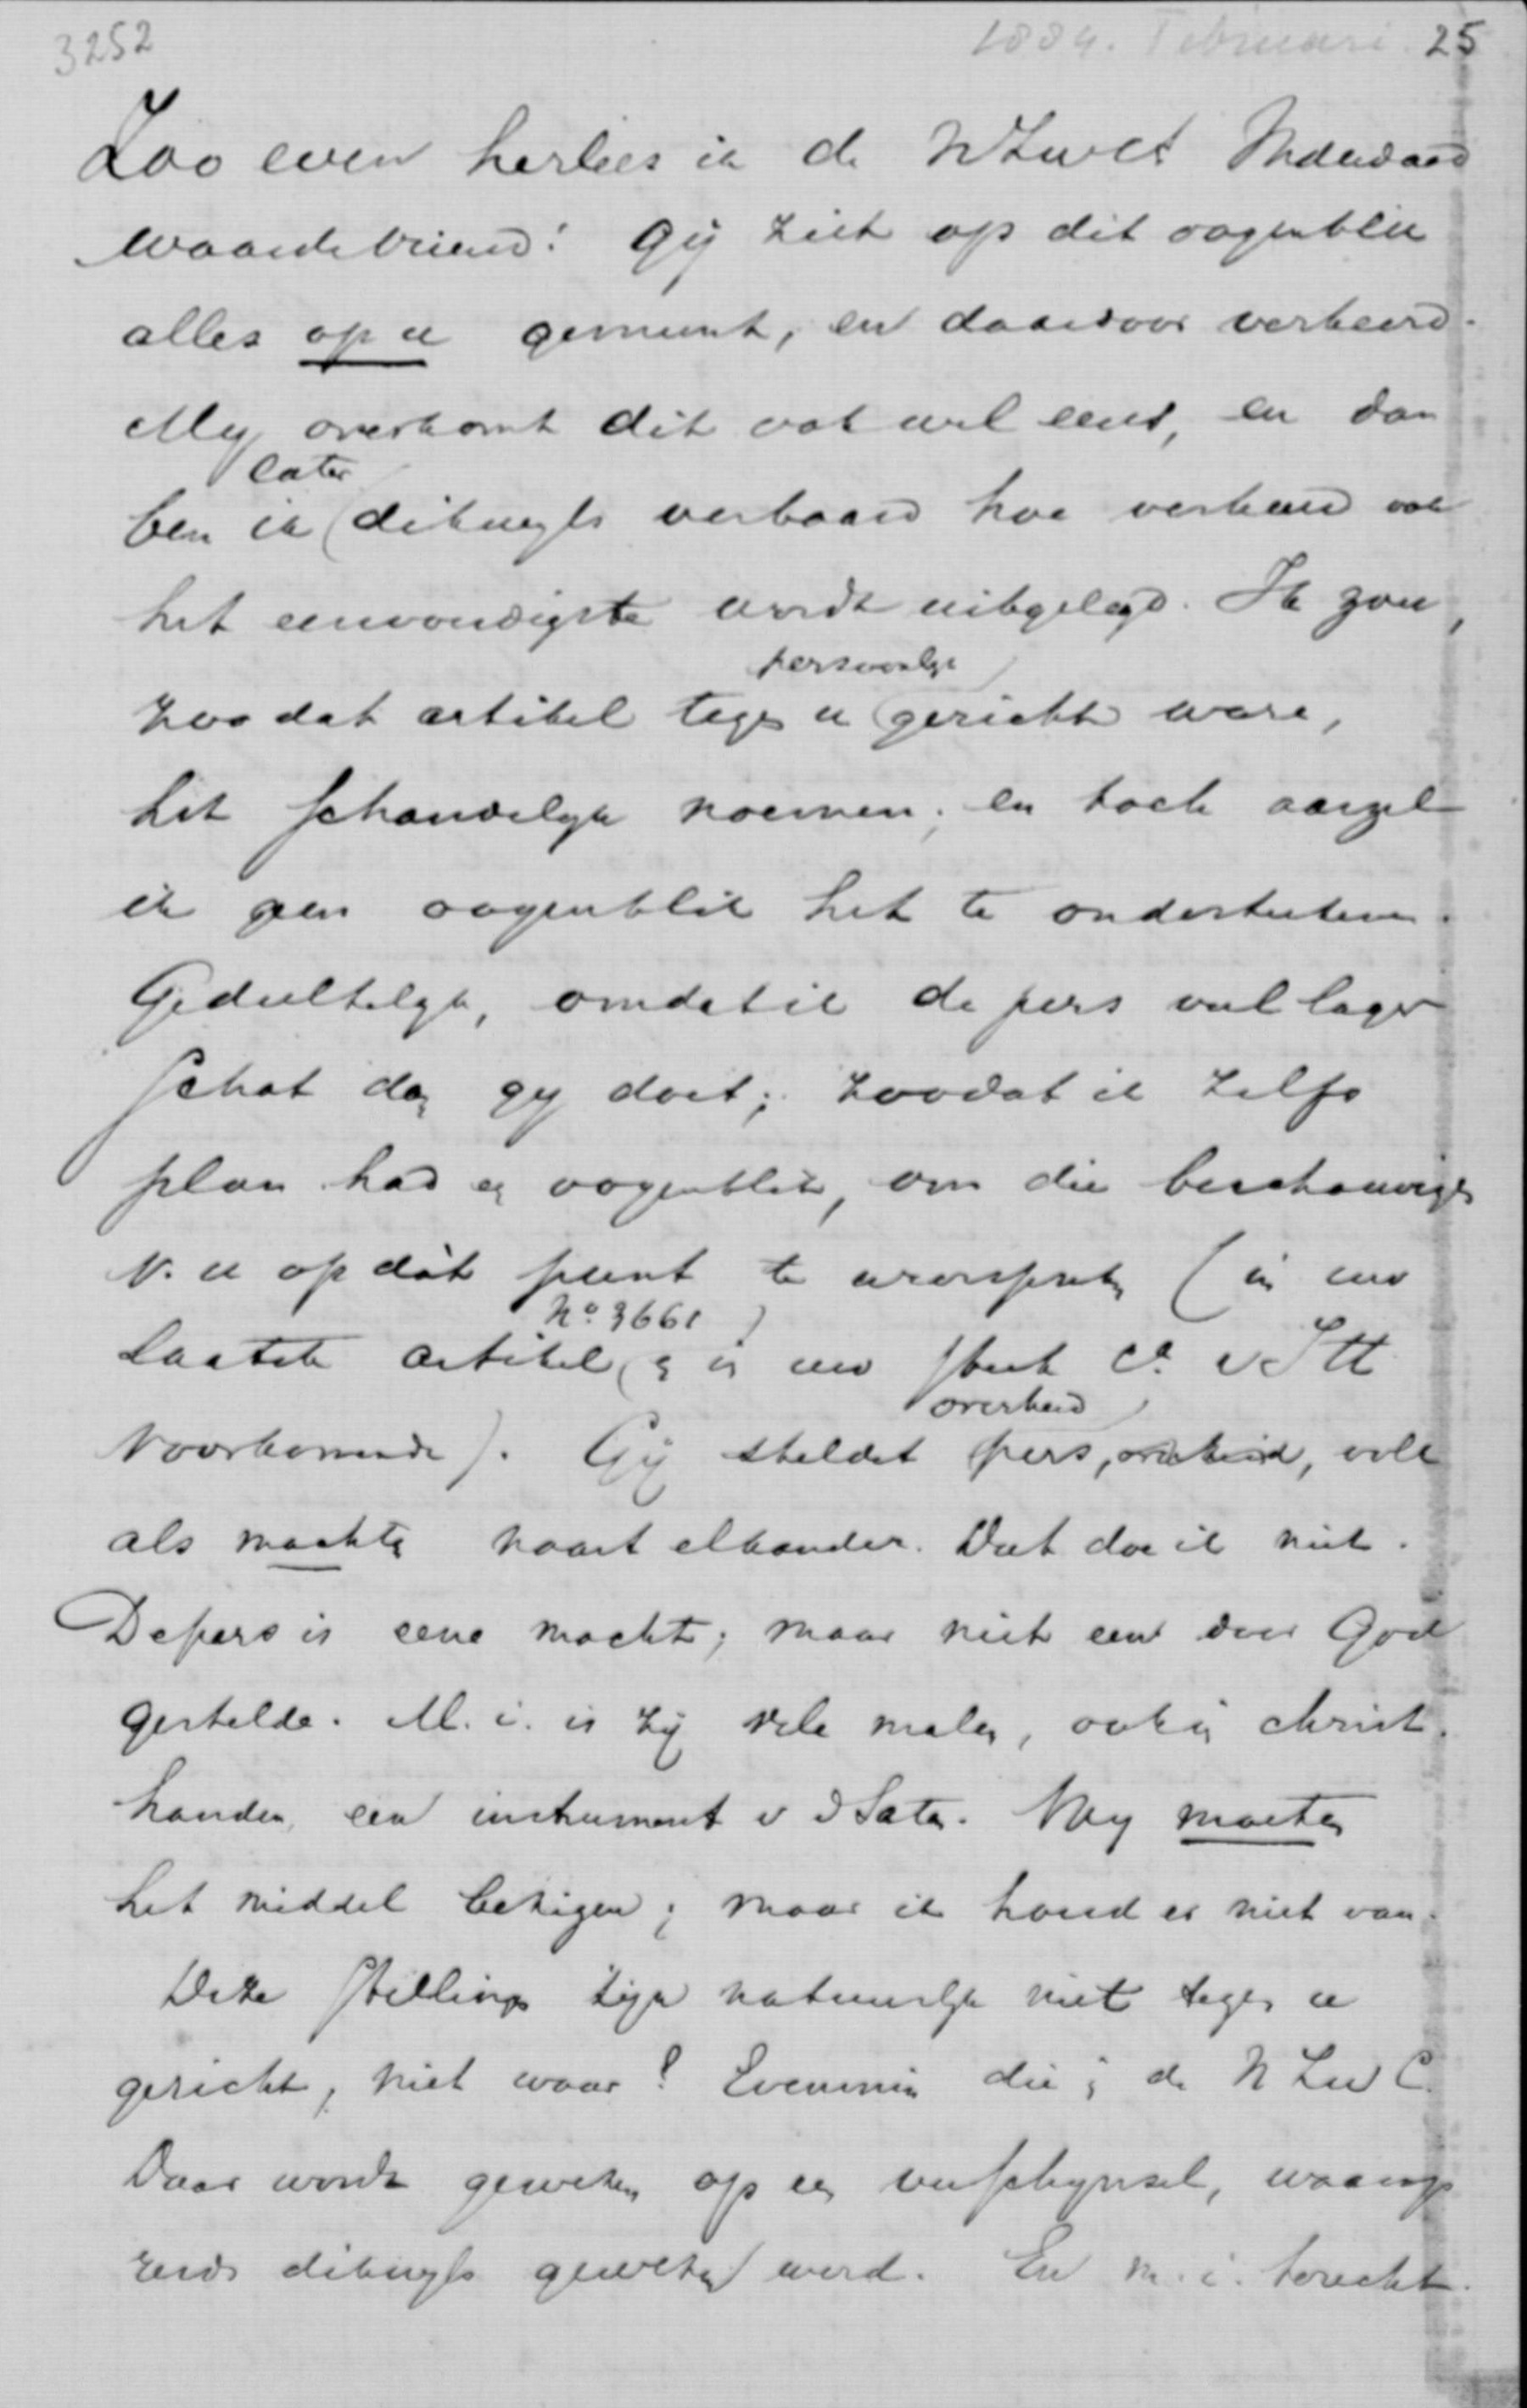 3252 1884. Februari 25
Zoo even herlees ik de N Zwct Inderdaad
waarde vriend! Gij ziet op dit oogenblik
alles op u gemunt, en daardoor verkeerd.
My overkomt dit ook wel eens, en dan
later
ben ik (dikwyls verbaasd hoe verkeerd ook
het eenvoudigste wordt uitgelegd. Ik zou,
persoonlyk
zoo dat artikel tegen u (gericht ware,
het schandelyk noemen; en toch aarzel
ik geen oogenblik het te onderteekenen.
Gedeeltelyk, omdat ik de pers veel lager
schat dan gy doet; zoodat ik zelfs
plan had een oogenblik, om die beschouwingen
v. u op dát punt te weerspreken (in uw
No. 3661
laatste artikel (en in uw stuk
voorkomende). Gij steldet
overheid
(pers, overheid, volk
als machten naast elkander. Dat doe ik niet.
De pers is eene macht; maar niet eene door God
gestelde. M. i. is zij vele malen, ook in christ.
handen, een instrument v d Satan. Wy moeten
het middel bezigen; maar ik houd er niet van.
Deze stellingen zijn natuurlyk niet tegen u
gericht, niet waar? Evenmin die in de N Zw C.
Daar wordt gewezen op een verschynsel, waarop
reeds dikwyls gewezen werd. En m. i. terecht.